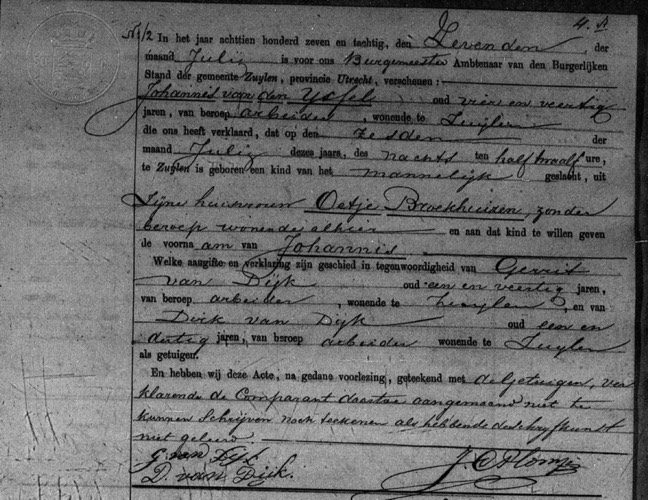 4.
No 12 In het jaar achttien honderd zeven en tachtig, den Zevenden, der
maand Julij is voor ons Burgemeester Ambtenaar van den Burgerlijken
Stand der gemeente Zuylen, provincie Utrecht, verschenen:
Johannis van den Yssel oud vier en veertig
jaren, van beroep arbeider, wonende te Zuylen
die ons heeft verklaard, dat op den zesden der
maand Julij dezes jaars, des nachts ten half twaalf ure,
te Zuylen is geboren een kind van het mannelijk geslacht, uit
Zijne huisvrouw Oetje Broekhuizen, zonder
beroep wonende alhier en aan dat kind te willen geven
de voornaam van Johannis.
Welke aangifte en verklaring zijn geschied in tegenwoordigheid van Gerrit
van Dijk oud een en veertig jaren,
van beroep arbeider, wonende te Zuylen, en van
Dirk van Dijk oud een en
dertig jaren, van beroep arbeider wonende te Zuylen
als getuigen.
En hebben wij deze Acte, na gedane voorlezing, geteekend met de Getuigen, ver
klarende de Comparant daartoe aangemaand niet te
kunnen schrijven noch teekenen als hebbende de schrijfkunst
niet geleerd.
G van Dijk
D. van Dijk.